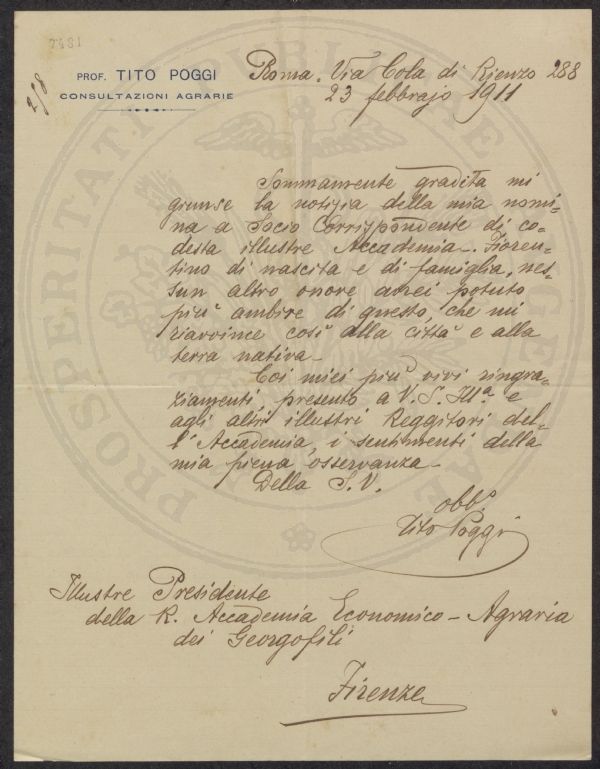 7481
2/8
PROF. TITO POGGI
CONSULTAZIONI AGRARIE
Roma. Via Cola di Rienzo 288
23 febbrajo 1911
Sommamente gradita mi
giunse la notizia della mia nomi-
na a Socio Corrispondente di co-
desta illustre Accademia. Fioren-
tino di nascita e di famiglia, nes-
sun altro onore avrei potuto
più ambire di questo, che mi
riavvince così alla città e alla
terra nativa.
Coi miei più vivi ringra-
ziamenti presento a V. S. Illª e
agli altri illustri Reggitori del-
l'Accademia, i sentimenti della
mia piena osservanza.
Della S. V.
obb.º
Tito Poggi
Illustre Presidente
della R. Accademia Economico-Agraria
dei Georgofili
Firenze
PROSPERITATI PUBLICAE AUGENDAE